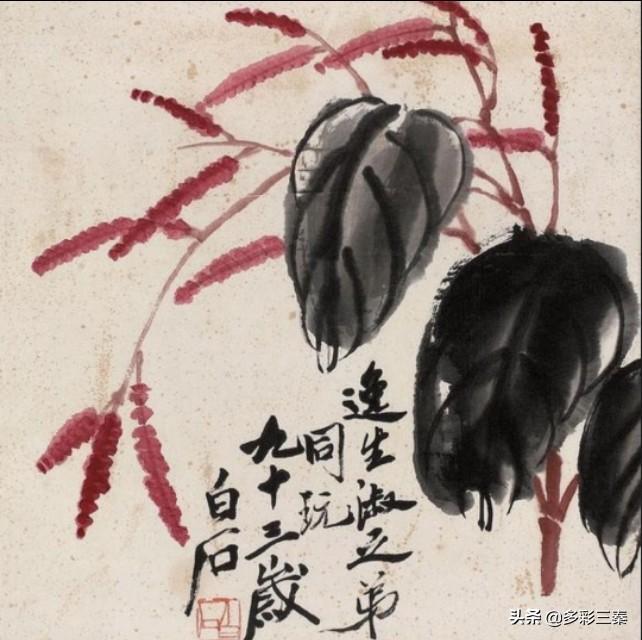 逸生淑正弟
同玩
九十三歲
白石
头条 @多彩三秦